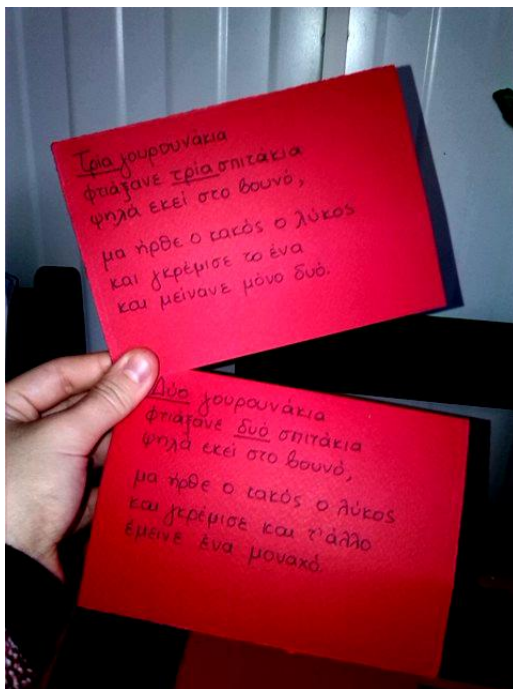 Τρία γουρουνάκια
φτιάξανε τρία σπιτάκια
ψηλά εκεί στο βουνό,
μα ήρθε ο κακός ο λύκος
και γκρέμισε το ένα
και μείνανε μόνο δυό.
Δύο γουρουνάκια
φτιάξανε δυό σπιτάκια
ψηλά εκεί στο βουνό,
μα ήρθε ο κακός ο λύκος
και γκρέμισε και τ'άλλο
έμεινε ένα μοναχό.